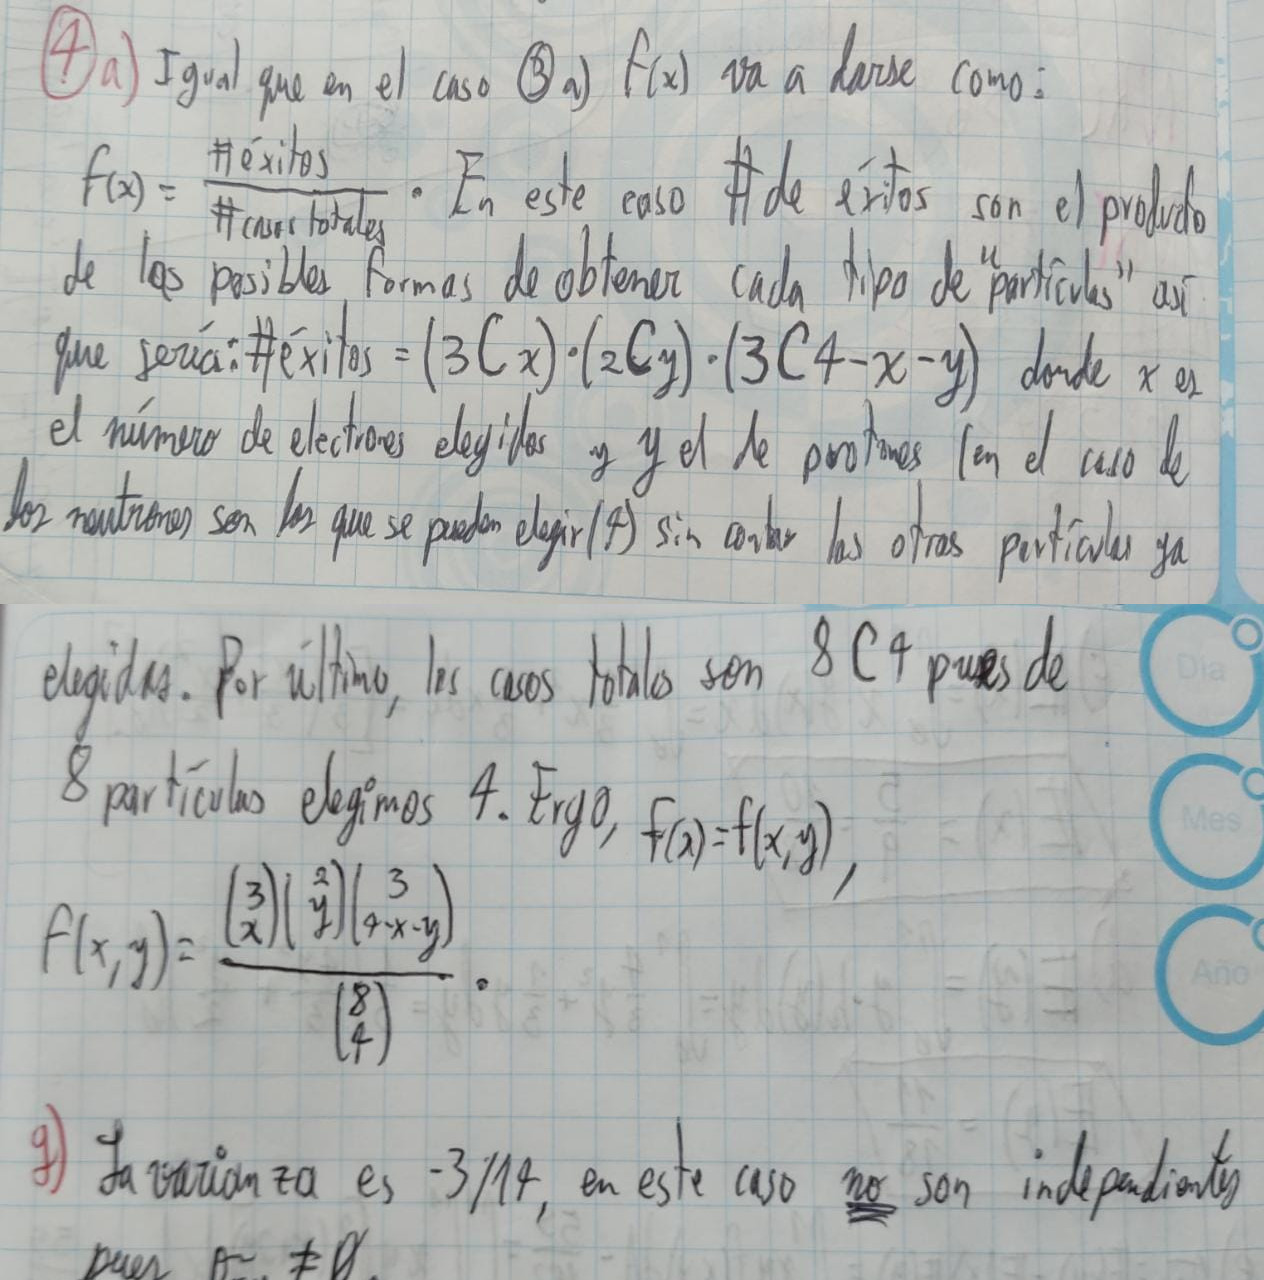 4 a) Igual que en el caso 3 a) f(x) va a darse como:
f(x) = #éxitos / #casos totales . En este caso # de éxitos son el producto
de las posibles formas de obtener cada tipo de "partículas" así
que sería: #éxitos = (3Cx)·(2Cy)·(3C4-x-y) donde x es
el número de electrones elegidos y y el de protones (en el caso de
los neutrones son los que se pueden elegir (4) sin contar las otras partículas ya
elegidas. Por último, los casos totales son 8C4 pues de
8 partículas elegimos 4. Ergo, f(x)=f(x,y),
f(x,y) = (3 x)(2 y)(3 4-x-y) / (8 4) .
g) La varianza es -3/14, en este caso no son independientes
pues ≠ 0.
Día
Mes
Año